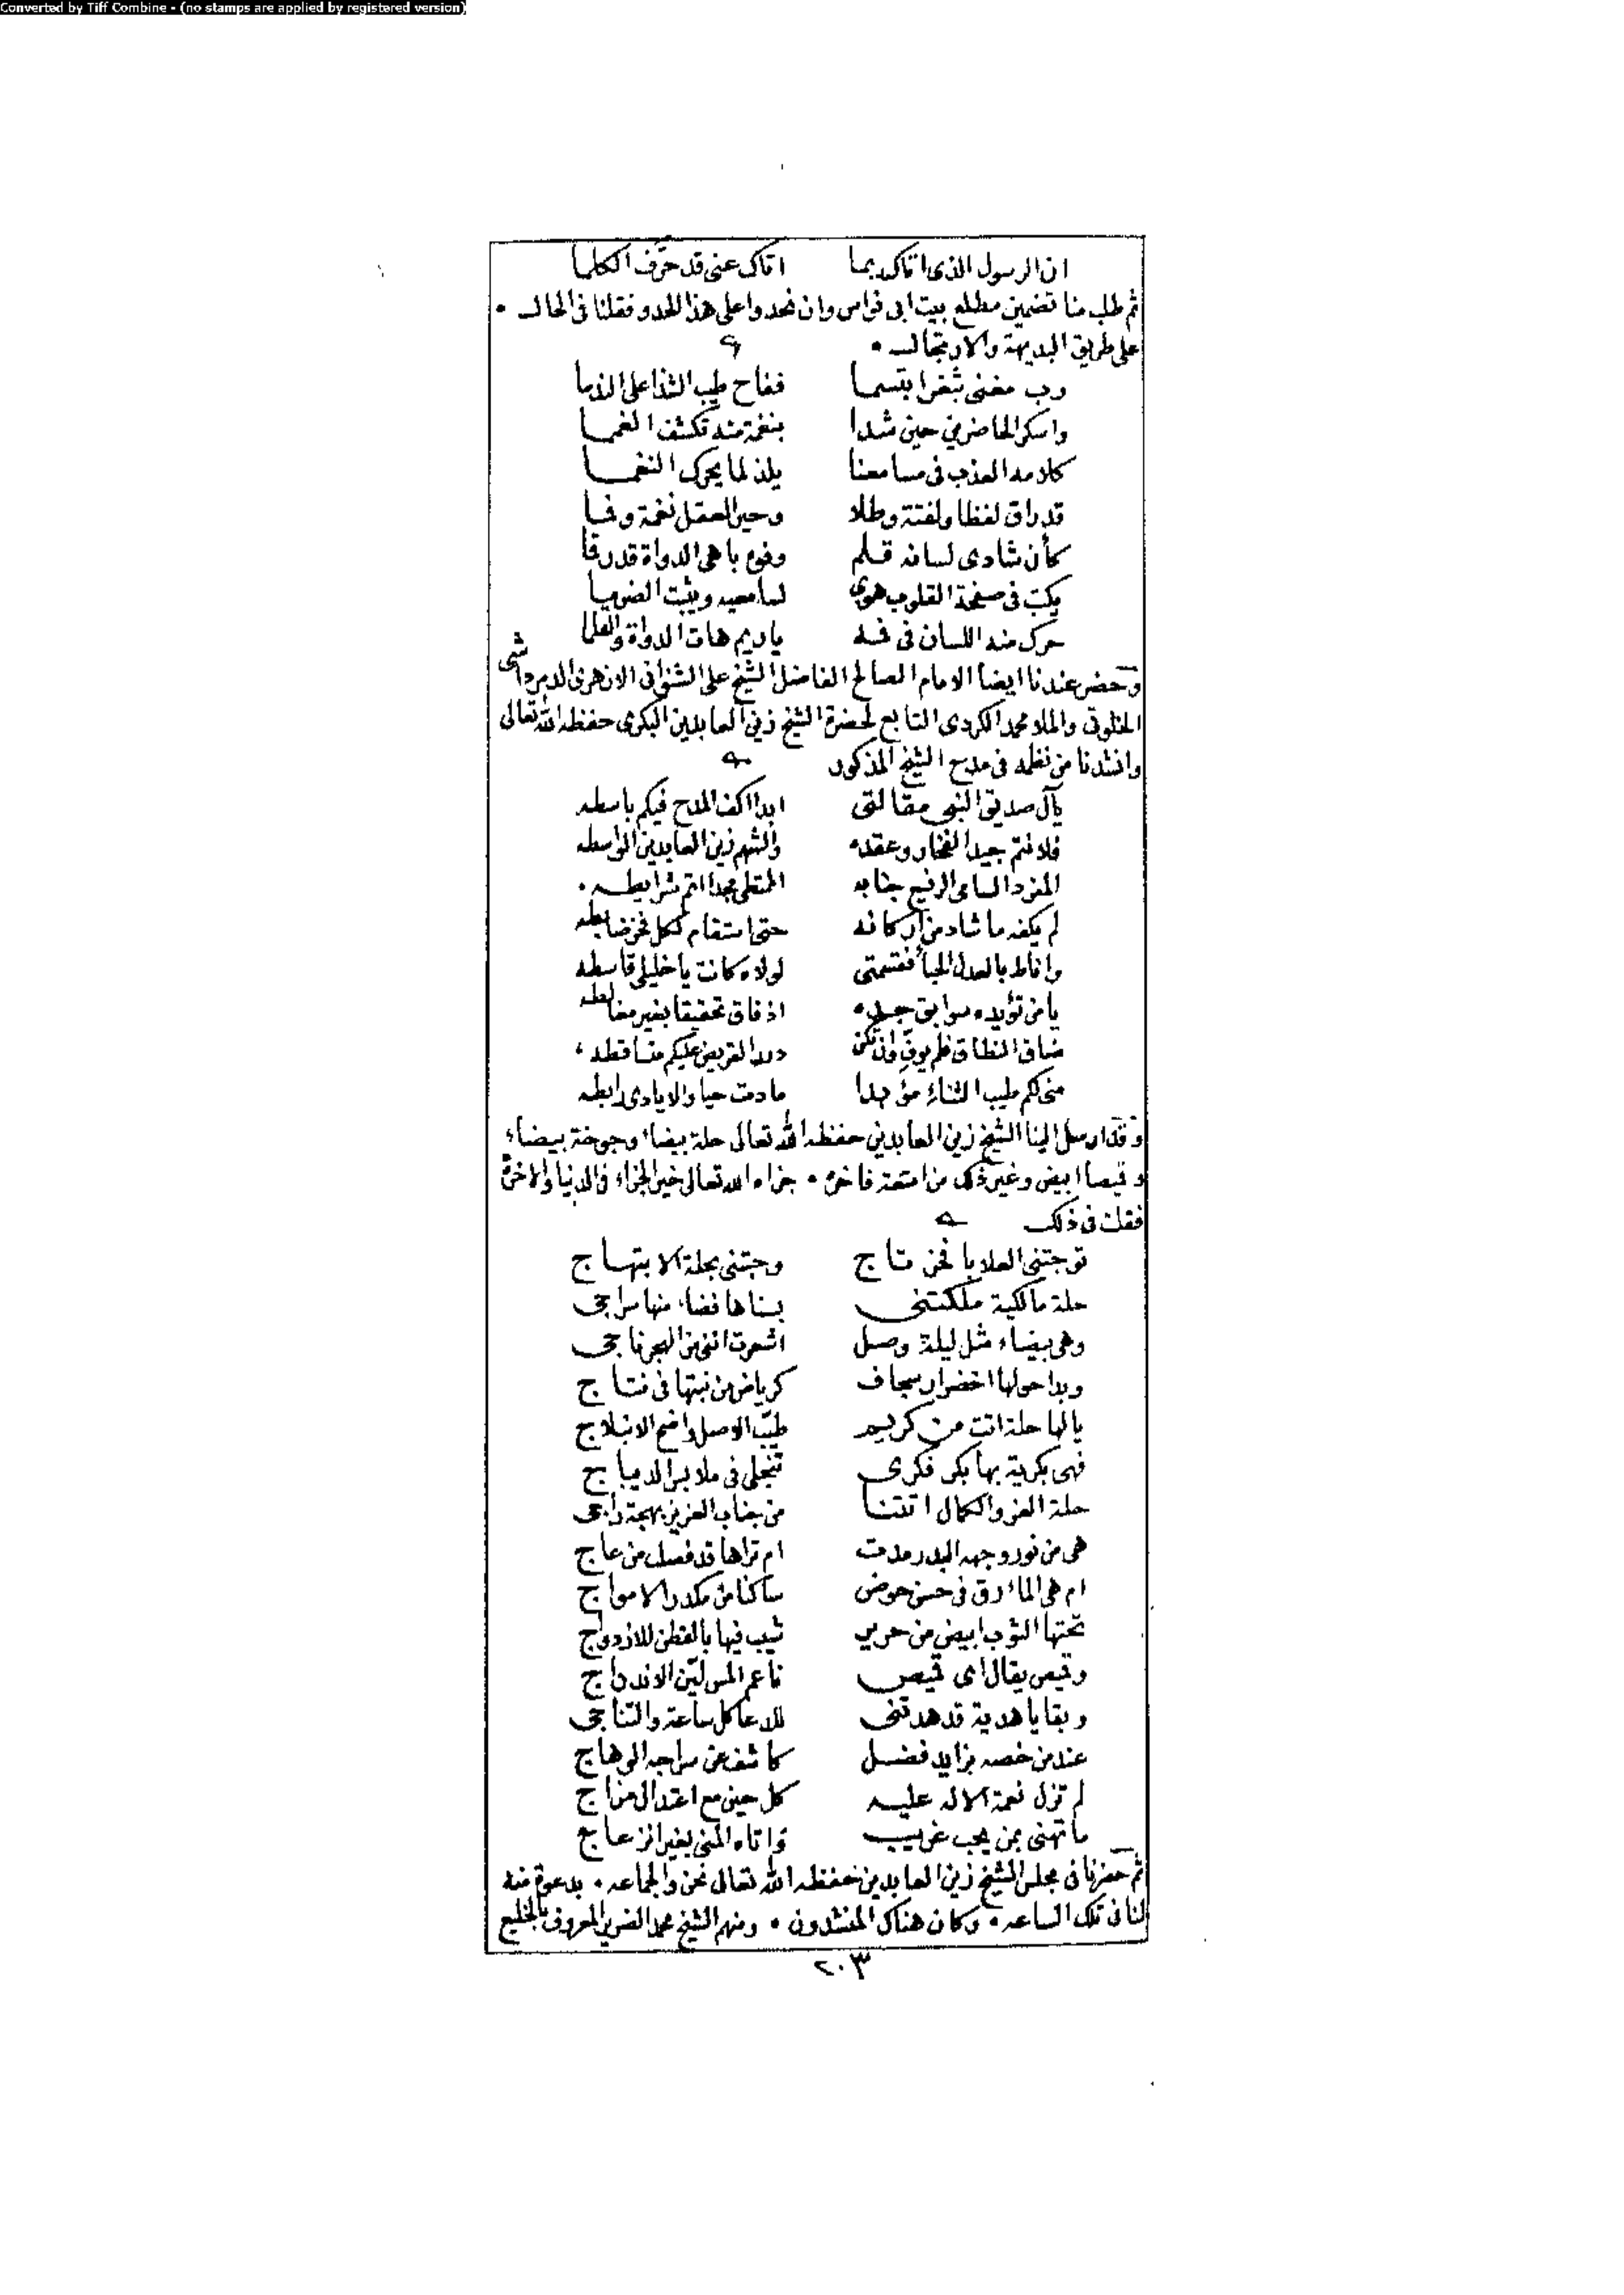 Converted by Tiff Combine - (no stamps are applied by registered version)
ان الرسول الذى اتاك بما اتاك عنى قد حرّف الكلما
ثم طلب منا تضمين مطلع بيت ابى نواس وان نحدوا على هذا الحدو فقلنا فى الحال •
على طريق البديهة والارتجال •
رب مغنى ثغرا بتسما ففاح طيب الشذا على الندما
واسكر الحاضرين حين شدا بنغمة منه تكشف الغمـا
كلامه العذب فى مسامعنا يلذ لما يحرك النغمـا
قد راق لفظا ولفتة وطلا وحير العقل نغمة وفما
كأن شادى لسانه قلم وفوه باهى الدواة قد رقما
يكتب فى صفحة القلوب هوى لسامعيه ويثبت
حرك منه اللسان فى فمه ياريم هات الدواة والقلما
وحضر عندنا ايضا الامام الصالح الفاضل الشيخ على الشنوانى الازهرى الدمرداشى
الخلوتى والملا محمد الكردى التابع لحضرة الشيخ زين العابدين البكرى حفظه الله تعالى
وانشدنا من نظمه فى مدح الشيخ المذكور
يآل صديق النبى مقالتى ابدا اكف المدح فيكم باسطه
فلانتم جيد الفخار وعقده والشهم زين العابدين الواسطه
المفرد السامى الرفيع جنابه المعتلى مجدا اتم شرايطه •
لم يكفه ما شاد من اركانه حتى استقام لكل فخر ضابطه
واناط بالعدل لولاه كانت يا خليلى قاسطه
يا من تؤيده سوابق جده اذ فاق تحقيقا بغير مغالطه
ضاق النطاق فلم يوف وان تكن درر القريض عليكم متساقطه
منى لكم طيب الثناء مؤبدا ما دمت حيا والايادى رابطه
وقد ارسل الينا الشيخ زين العابدين حفظه الله تعالى حلة بيضاء وجوخة بيضاء
وقيصا ابيض وغير ذلك من امتعة فاخره • جزاه الله تعالى خير الجزاء فى الدنيا والاخرة
فقلت فى ذلك
توجتنى العلا يا فخر تاج وحبتنى بحلة الابتهاج
حلة مالكية ملكتنى بسناها فضاء منها سراجى
وهى بيضاء مثل ليلة وصل اشعرت اننى من الهجر ناجى
وبدا حولها اخضرار سجاف كرياض من نبتها فى نتاج
يالها حلة اتت من كريم طيّب الاصل واضح الانبلاج
فهى بكرية بها بكر فكرى تنجلى فى ملابس الديباج
حلة العز والكمال اتتنا من جناب العزيز بهجة راجى
هى من نور وجهه البدر مدت ام تراها قد فصلت من عاج
ام هى الماء رق فى حسن حوض ساكنا من مكدر الامواج
تحتها الثوب ابيض من حرير شيب فيها بالقطن للازدواج
وقيص يقال اى قيص ناعم المس ليّن الاندراج
وبقايا هدية قد هدتنى للدعا كل ساعة والتناجى
عند من خصه بزايد فضل كاشف عن سراجه الوهاج
لم تزل نعمة الاله عليه كل حين مع اعتدال مزاج
ما تهنى بمن يحب غريب واتاه المنى بغير انزعاج
ثم حضرنا فى مجلس الشيخ زين العابدين حفظه الله تعالى نحن والجماعه • بدعوة منه
لنا فى تلك الساعه • وكان هناك المنشدون • ومنهم الشيخ محمد الضرير المعروف بالخليع
٢٠٣